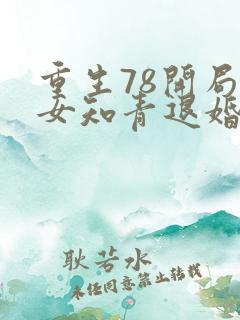 重生78開局
女知青退婚
耿若水
未经同意禁止转载